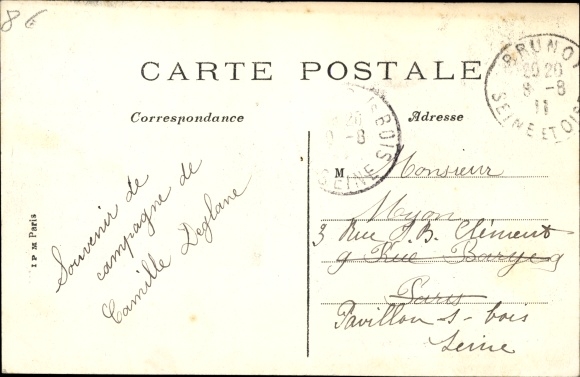 86
CARTE POSTALE
Correspondance
Adresse
BRUNOY
20 20
8 -8
11
SEINE ET OISE
BOIS
20
9 -8
SEINE
Souvenir de
campagne de
Camille Deglane
I P M Paris
M
Monsieur
Myon
3 Rue J. B. Clément
9 Rue Barye 9
Paris
Pavillon-s-bois
Seine